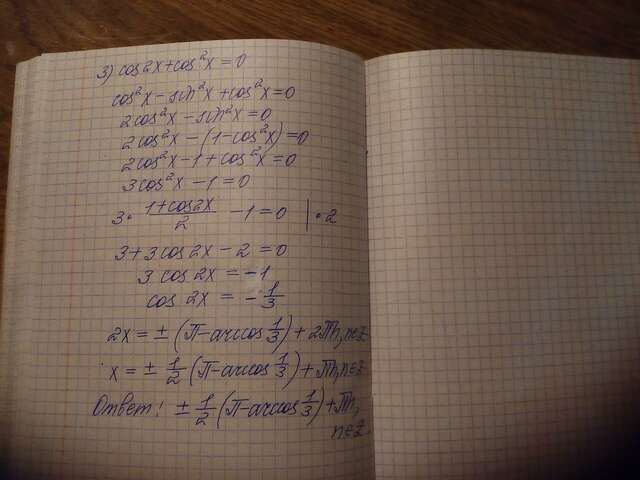 3) cos2x+cos²x=0
cos²x-sin²x+cos²x=0
2cos²x-sin²x=0
2cos²x-(1-cos²x)=0
2cos²x-1+cos²x=0
3cos²x-1=0
3·(1+cos2x)/2-1=0 |·2
3+3cos2x-2=0
3cos2x=-1
cos2x=-1/3
2x=±(π-arccos 1/3)+2πn, n∈Z
x=±1/2(π-arccos 1/3)+πn, n∈Z
Ответ: ±1/2(π-arccos 1/3)+πn,
n∈Z